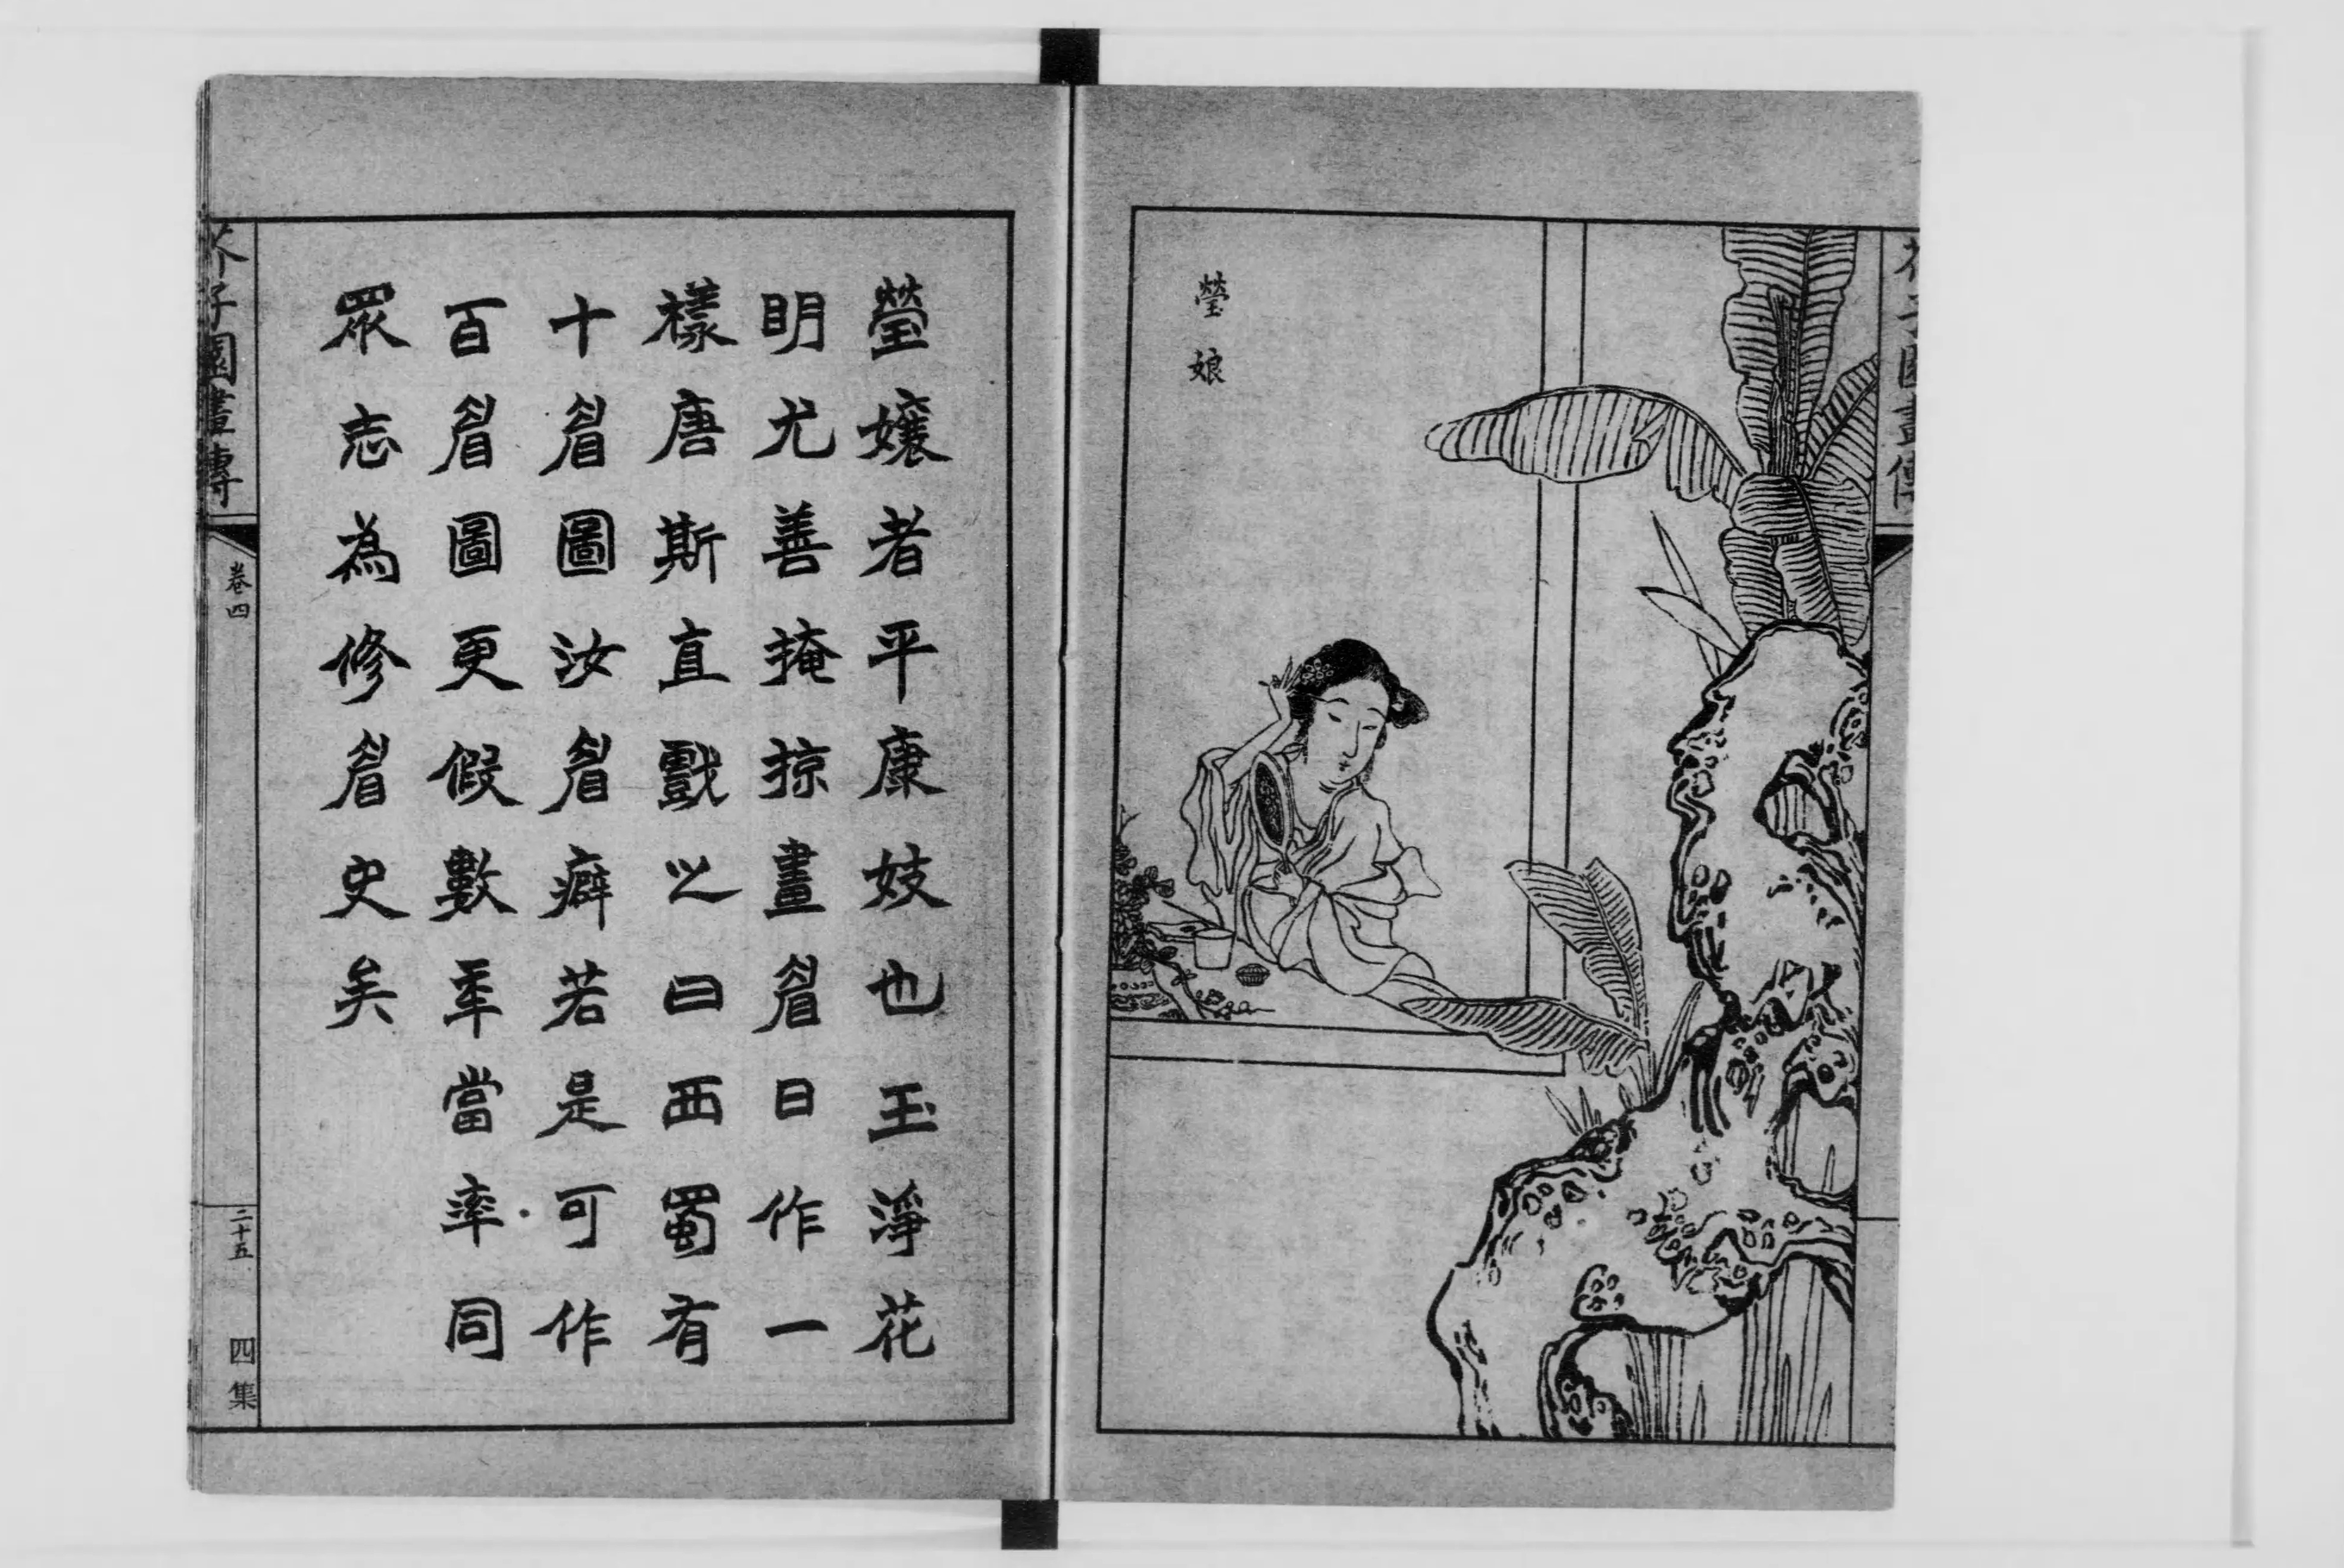 芥子園畫傳
瑩娘
瑩孃者平康妓也玉淨花
明尤善掩掠畫眉日作一
樣唐斯直戲之曰西蜀有
十眉圖汝眉癖若是可作
百眉圖更假數年當率同
眾志為修眉史矣
芥子園畫傳
卷四
二十五
四集